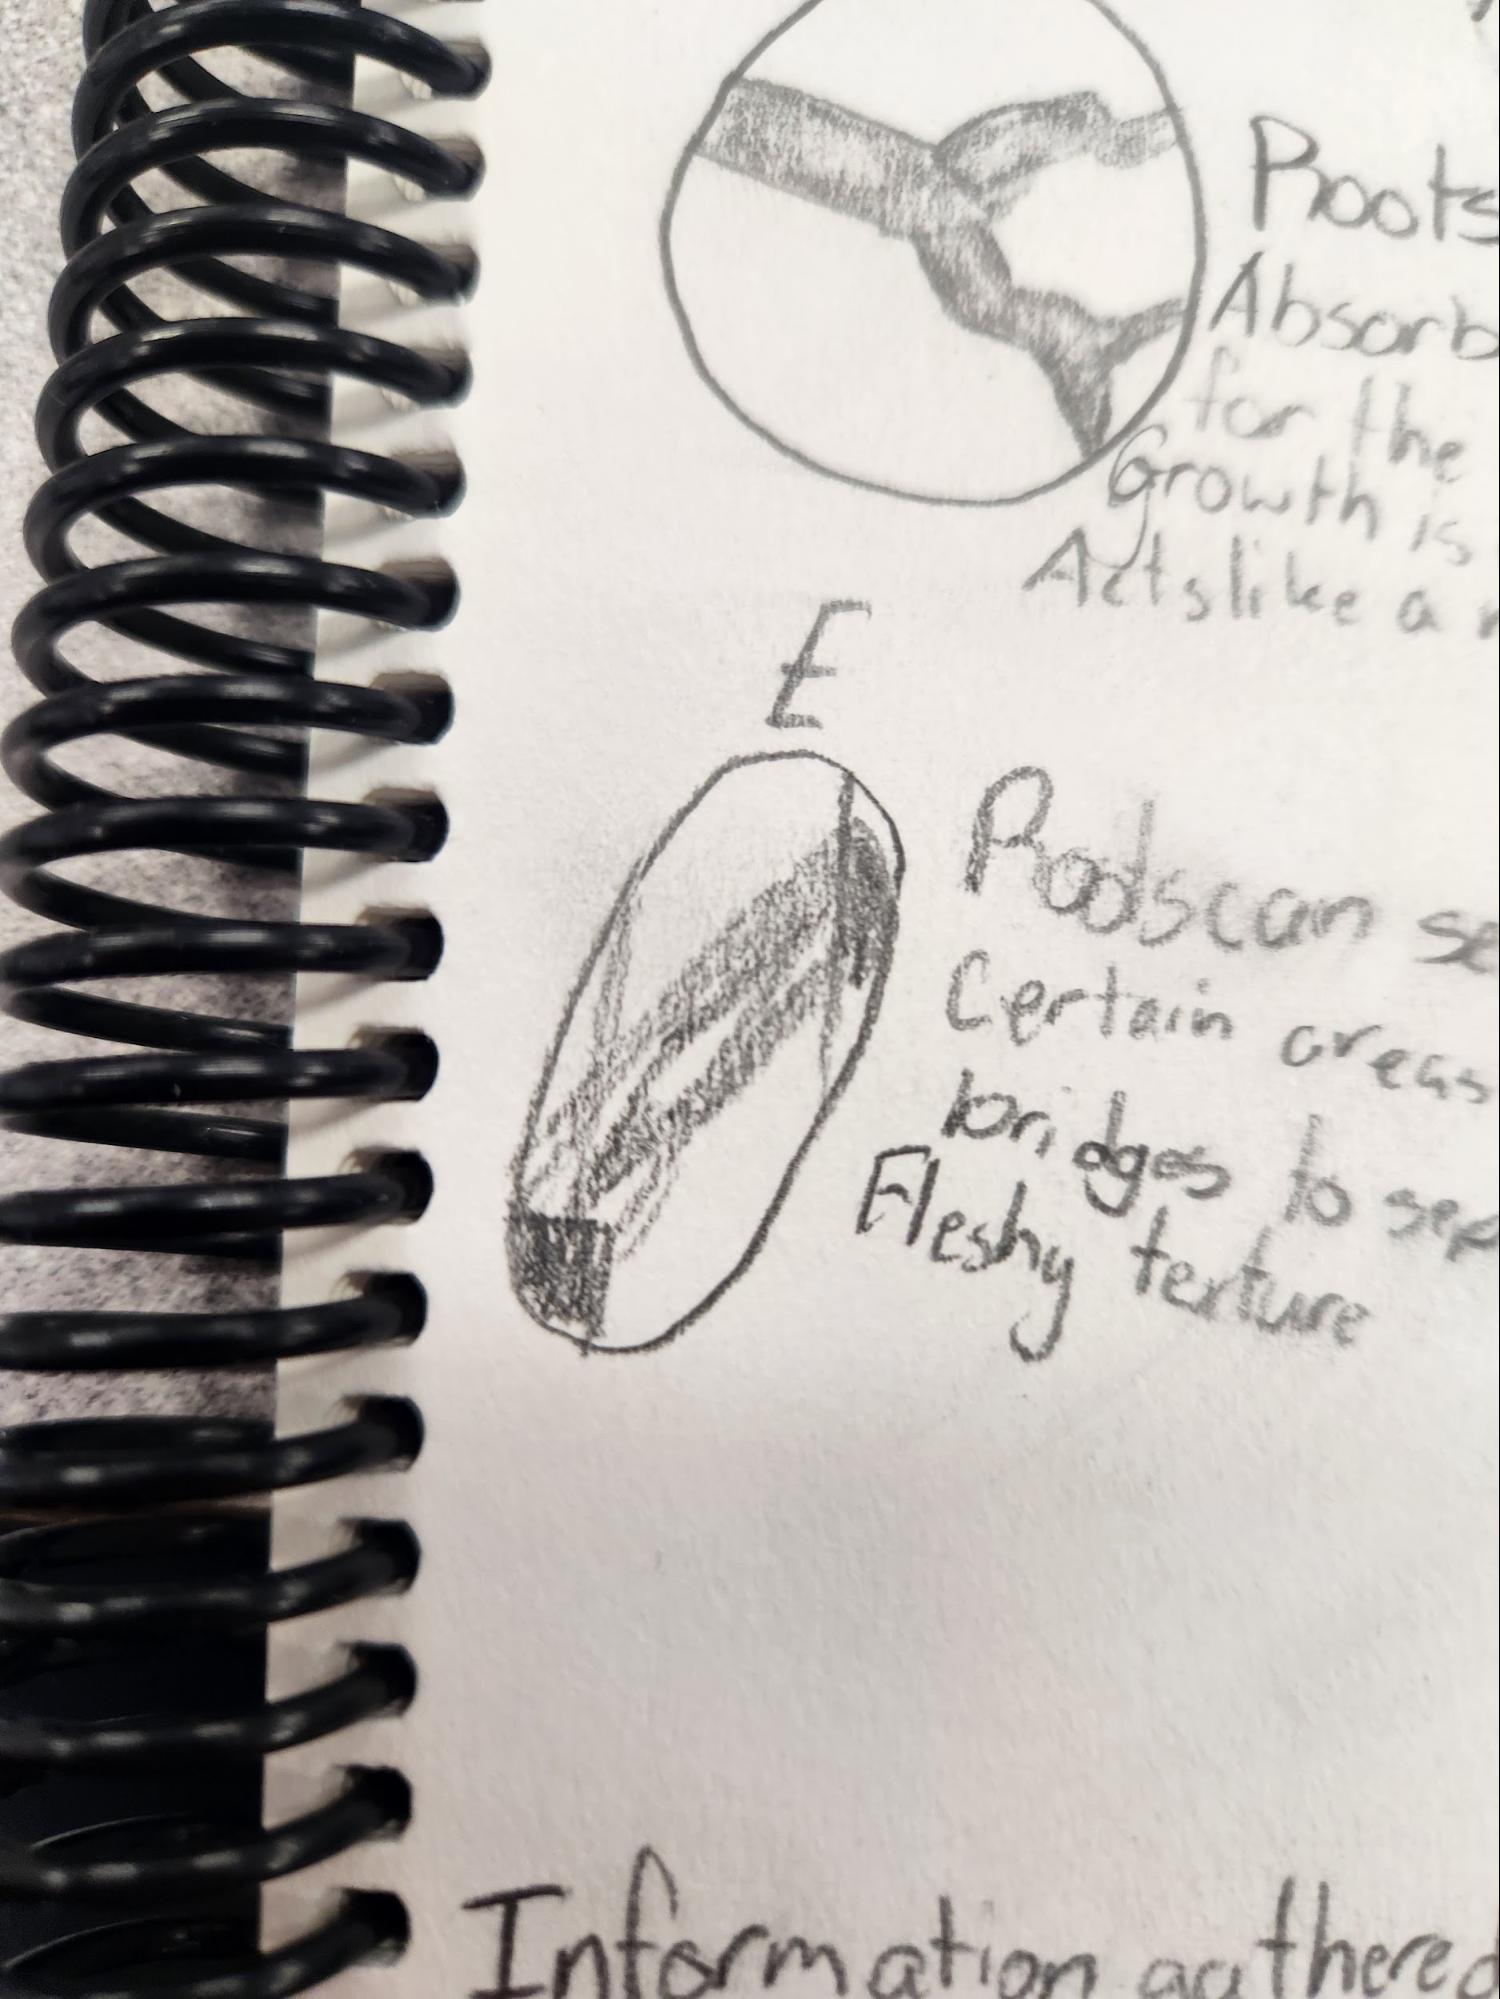 Roots
Absorb
for the
Growth is
Acts like a
E
Roots can se
Certain areas
bridges to sep
Fleshy texture
Information gathered